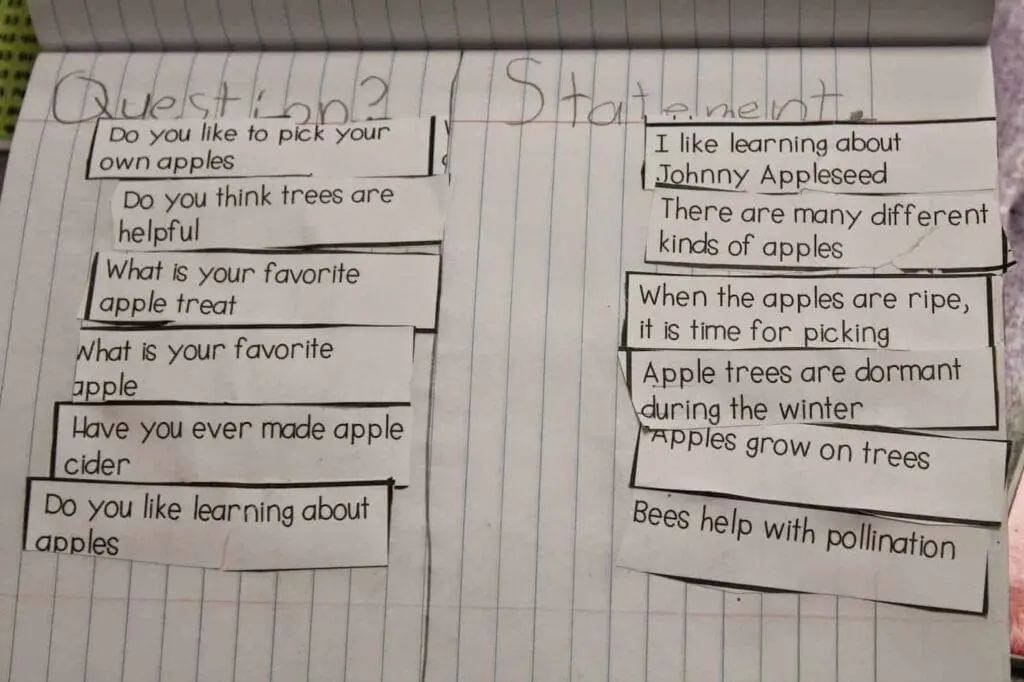 Question?
Do you like to pick your
own apples
Do you think trees are
helpful
What is your favorite
apple treat
What is your favorite
apple
Have you ever made apple
cider
Do you like learning about
apples
Statement.
I like learning about
Johnny Appleseed
There are many different
kinds of apples
When the apples are ripe,
it is time for picking
Apple trees are dormant
during the winter
Apples grow on trees
Bees help with pollination